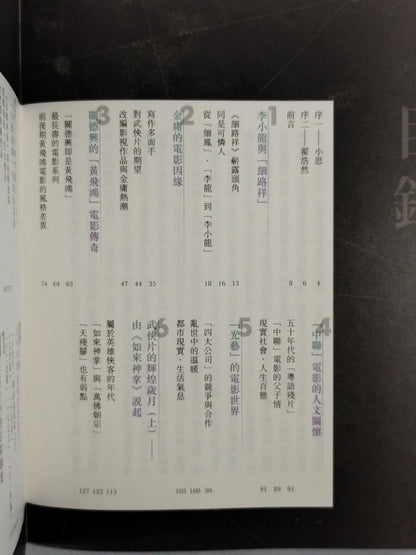 目錄
序一——小思 4
序二——翟浩然 6
前言 8
1
李小龍與「細路祥」
《細路祥》嶄露頭角 13
同是可憐人 16
從「細鳳」、「李龍」到「李小龍」 18
2
金庸的電影因緣
寫作多面手 35
對武俠片的期望 44
改編影視作品與金庸熱潮 47
3
關德興的「黃飛鴻」電影傳奇
「關德興即是黃飛鴻」 63
最長壽的電影系列 64
前後期黃飛鴻電影的風格差異 74
4
「中聯」電影的人文關懷
五十年代的「粵語殘片」 81
「中聯」電影的父子情 89
現實社會、人生百態 91
5
「光藝」的電影世界
「四大公司」的競爭與合作 99
亂世中的溫暖 100
都市現實、生活氣息 105
6
武俠片的輝煌歲月（上）——
由《如來神掌》說起
屬於英雄俠客的年代 115
「如來神掌」與「萬佛朝宗」 122
「天殘腳」也有弱點 127